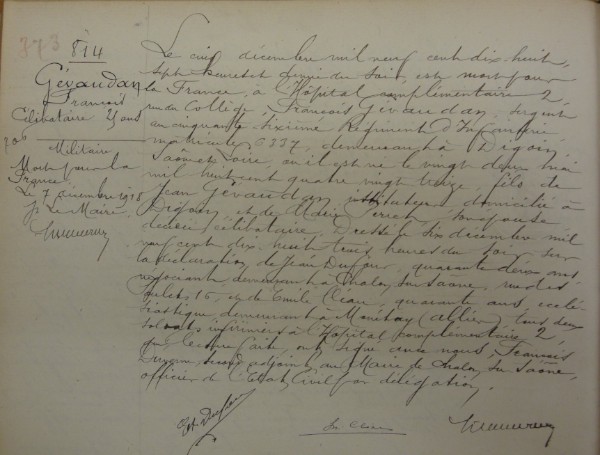 373
814
Gévaudan
François
Célibataire 25 ans
706
Militaire
Mort pour la
France
Le 7 décembre 1918
Le Maire,
Le cinq décembre mil neuf cent dix huit,
sept heures et demie du soir, est mort pour
la France, à l'Hôpital complémentaire 2,
rue du Collège, François Gévaudan, sergent
au cinquante sixième Régiment d'Infanterie
matricule 6337, demeurant à Digoin,
Saône et Loire, où il est né le vingt deux mai
mil huit cent quatre vingt treize, fils de
Jean Gévaudan, domicilié à
Digoin, et de Marie son épouse
décédée, célibataire. Dressé le six décembre mil
neuf cent dix huit, trois heures du soir, sur
la déclaration de Jean Dufour, quarante deux ans
négociant demeurant à Chalon sur Saône, rue des
16, et de Emile Cleau, quarante ans, ecclé
siastique demeurant à (Allier), tous deux
soldats infirmiers à l'Hôpital complémentaire 2,
qui, lecture faite, ont signé avec nous, François
second adjoint au Maire de Chalon sur Saône,
officier de l'Etat Civil par délégation.